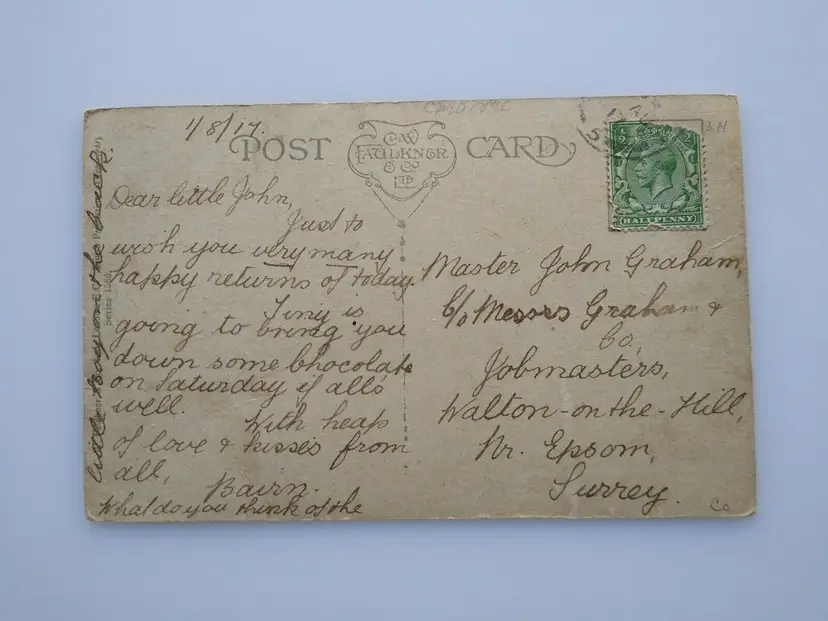 1/8/17.
POST CARD
C.W.
FAULKNER
& Co
LTD
Dear little John,
Just to
wish you very many
happy returns of today.
Tiny is
going to bring you
down some Chocolate
on Saturday if all's
well.
With heaps
of love & kisses from
all,
Bairn.
What do you think of the
little boy on the back.
Master John Graham,
C/o Messrs Graham &
Co,
Jobmasters,
Walton-on-the-Hill,
Nr. Epsom,
Surrey.
HALFPENNY
Series 1686
Co